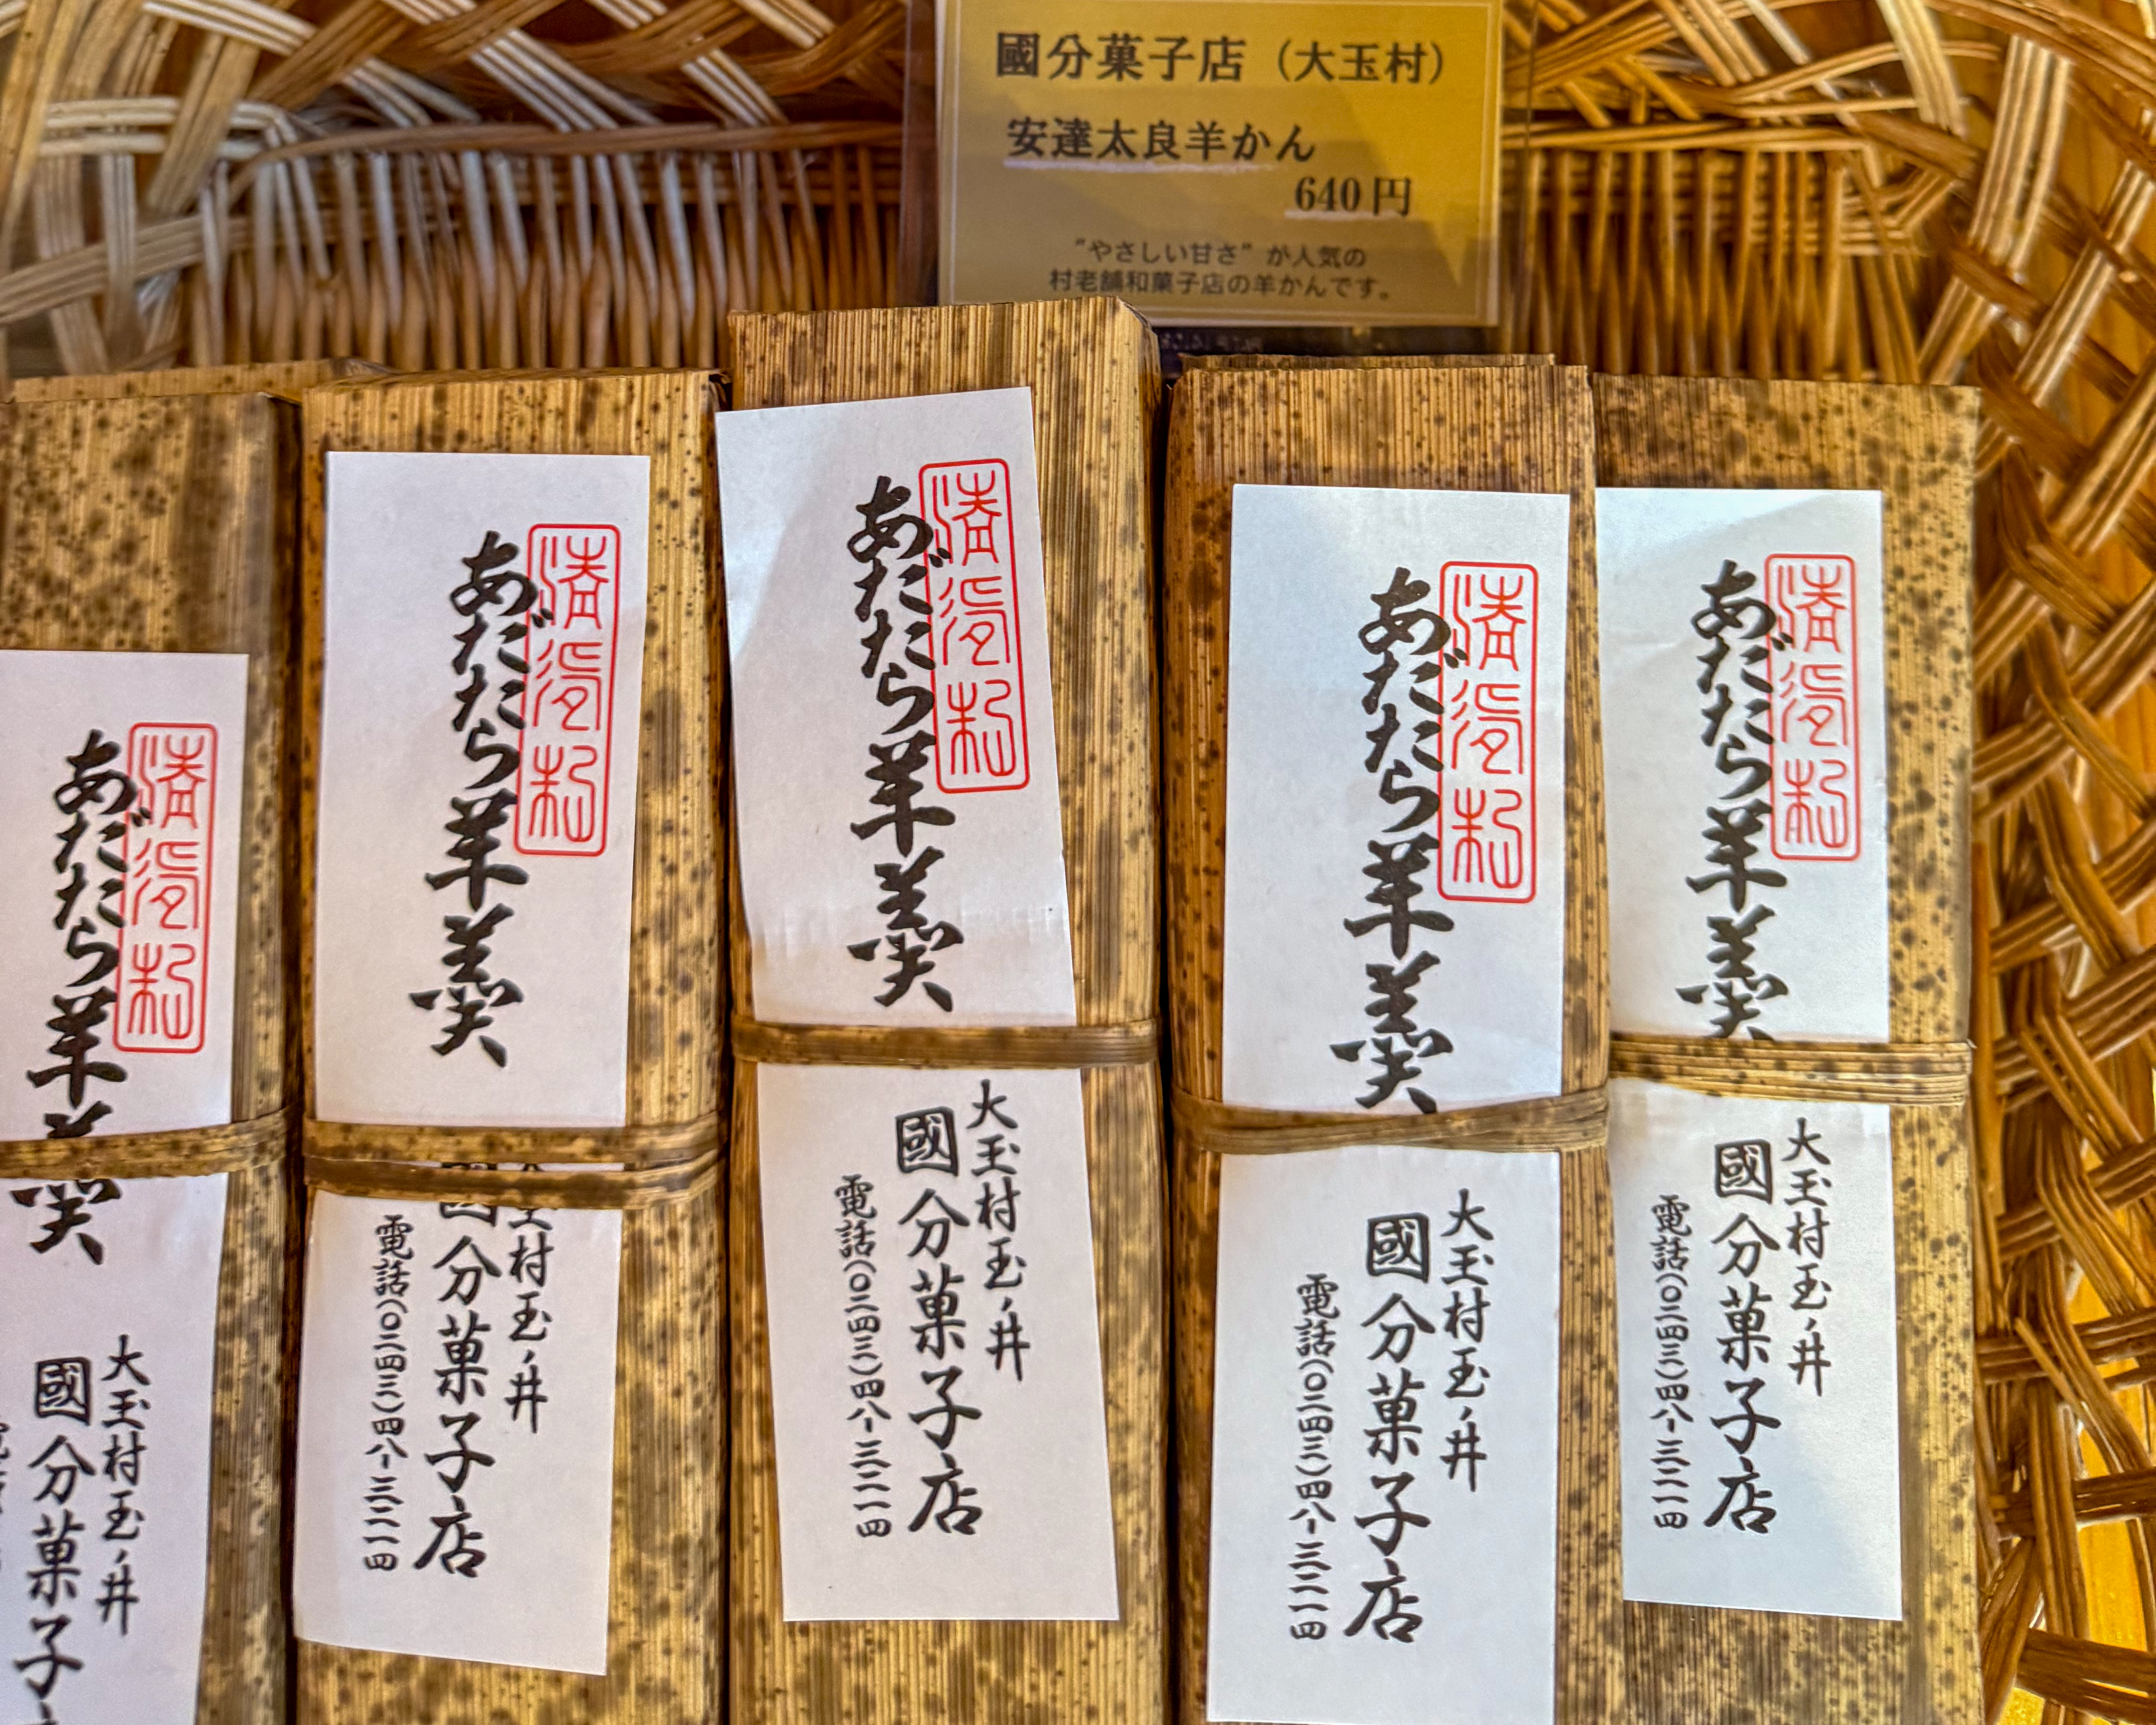 國分菓子店（大玉村）
安達太良羊かん
640円
“やさしい甘さ”が人気の
村老舗和菓子店の羊かんです。
あだたら羊羹
大玉村玉ノ井
國分菓子
あだたら羊羹
玉村玉ノ井
國分菓子店
電話(〇二四三)四八-三二一四
あだたら羊羹
大玉村玉ノ井
國分菓子店
電話(〇二四三)四八-三二一四
あだたら羊羹
大玉村玉ノ井
國分菓子店
電話(〇二四三)四八-三二一四
あだたら羊羹
大玉村玉ノ井
國分菓子店
電話(〇二四三)四八-三二一四